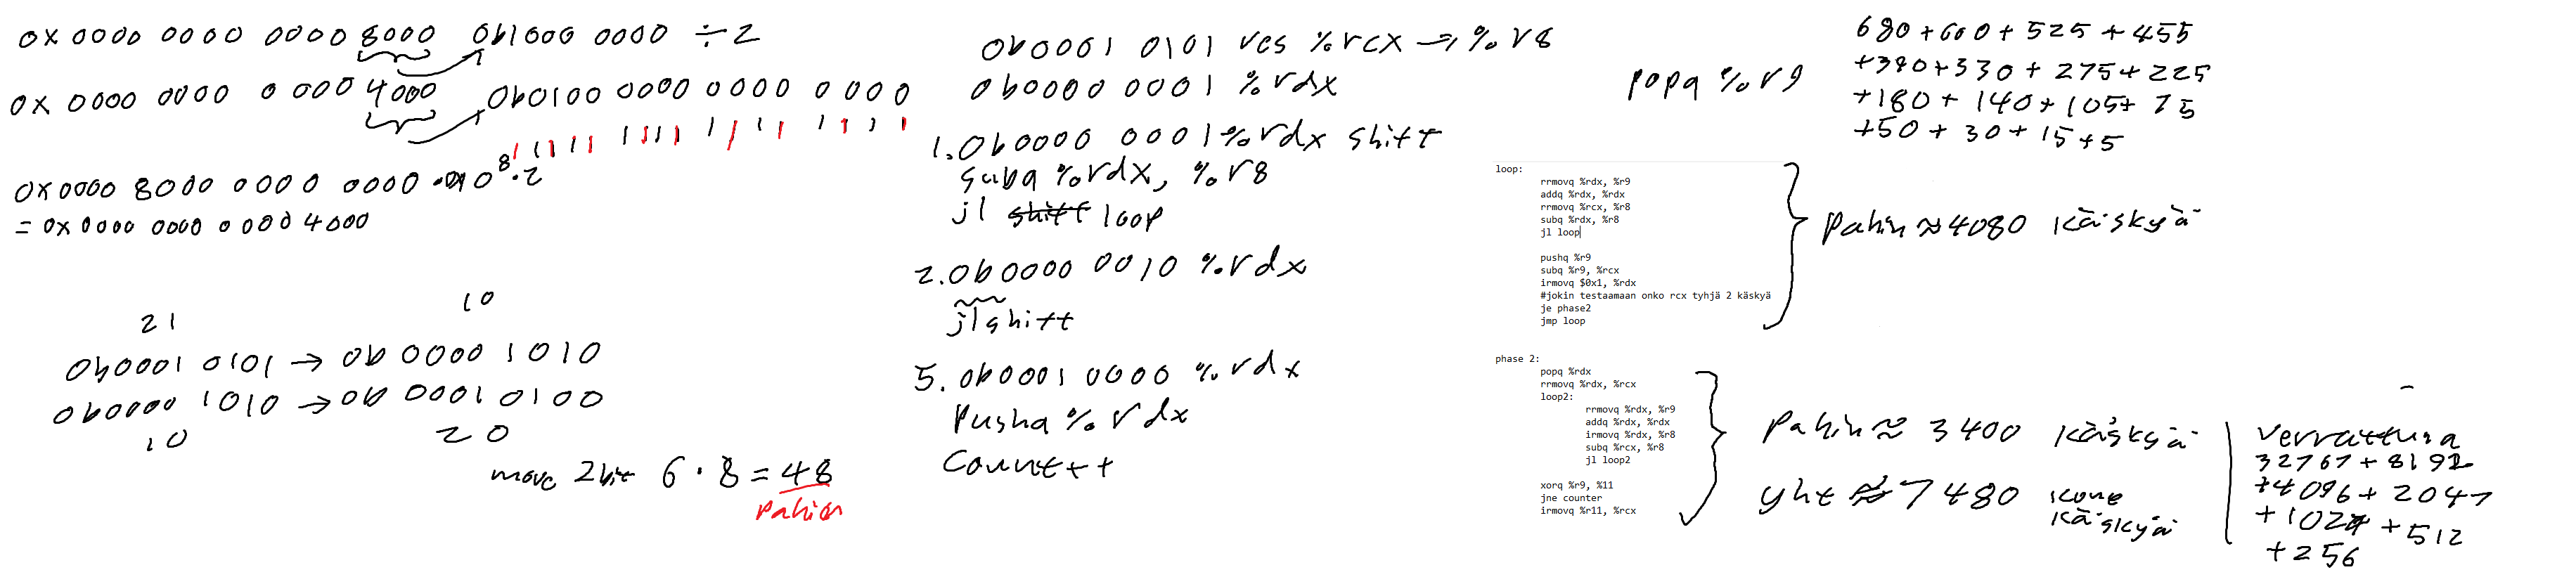 0x 0000 0000 0000 8000 0b1000 0000 ÷ 2
0x 0000 0000 0 000 4000 0b0100 0000 0000 0000
1 1 1 1 1 1 1 1 1 1 1 1 1 1 1 1 1
0x0000 8000 0000 0000
8
· 2
= 0x 0000 0000 0 000 4000
21
10
0b0001 0101 → 0b 0000 1010
0b0000 1010 → 0b 0001 0100
10
20
move 2bit 6 · 8 = 48
pahin
0b0001 0101 res %rcx → %r8
0b0000 0001 %rdx
1. 0b0000 0001 %rdx shift
subq %rdx, %r8
jl shift loop
2. 0b0000 0010 %rdx
jl shift
5. 0b0001 0000 %rdx
Pushq %rdx
Count++
popq %r9
680+600+525+455
+390+330+275+225
+180+140+105+75
+50+30+15+5
loop:
rrmovq %rdx, %r9
addq %rdx, %rdx
rrmovq %rcx, %r8
subq %rdx, %r8
jl loop
pushq %r9
subq %r9, %rcx
irmovq $0x1, %rdx
#jokin testaamaan onko rcx tyhjä 2 käskyä
je phase2
jmp loop
Pahin ≈ 4080 käskyä
phase 2:
popq %rdx
rrmovq %rdx, %rcx
loop2:
rrmovq %rdx, %r9
addq %rdx, %rdx
irmovq %rdx, %r8
subq %rcx, %r8
jl loop2
xorq %r9, %11
jne counter
irmovq %r11, %rcx
Pahin ≈ 3400 käskyä
yht ≈ 7480 kone käskyä
verrattuna
32767+8192
+4096+2047
+1024+512
+256